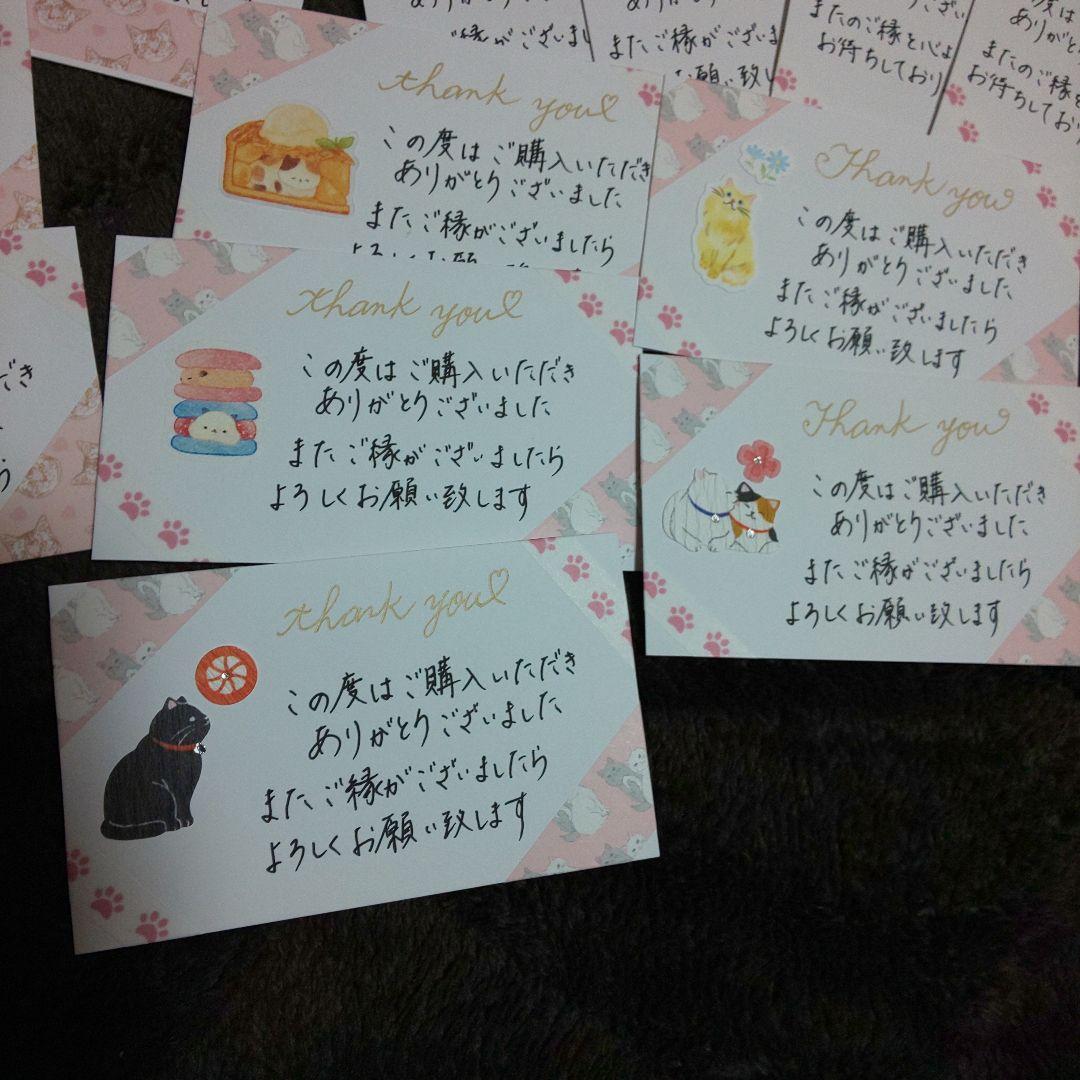 ありが
縁がございまし
ありがとうござい
またご縁がございま
お願い致し
ござい
またのご縁を心よ
お待ちしており
この度は
ありがと
またのご縁を
お待ちしており
thank you♡
この度はご購入いただき
ありがとうございました
またご縁がございましたら
Thank you
この度はご購入いただき
ありがとうございました
またご縁がございましたら
よろしくお願い致します
だき
ら
thank you♡
この度はご購入いただき
ありがとうございました
またご縁がございましたら
よろしくお願い致します
Thank you
この度はご購入いただき
ありがとうございました
またご縁がございましたら
よろしくお願い致します
thank you♡
この度はご購入いただき
ありがとうございました
またご縁がございましたら
よろしくお願い致します